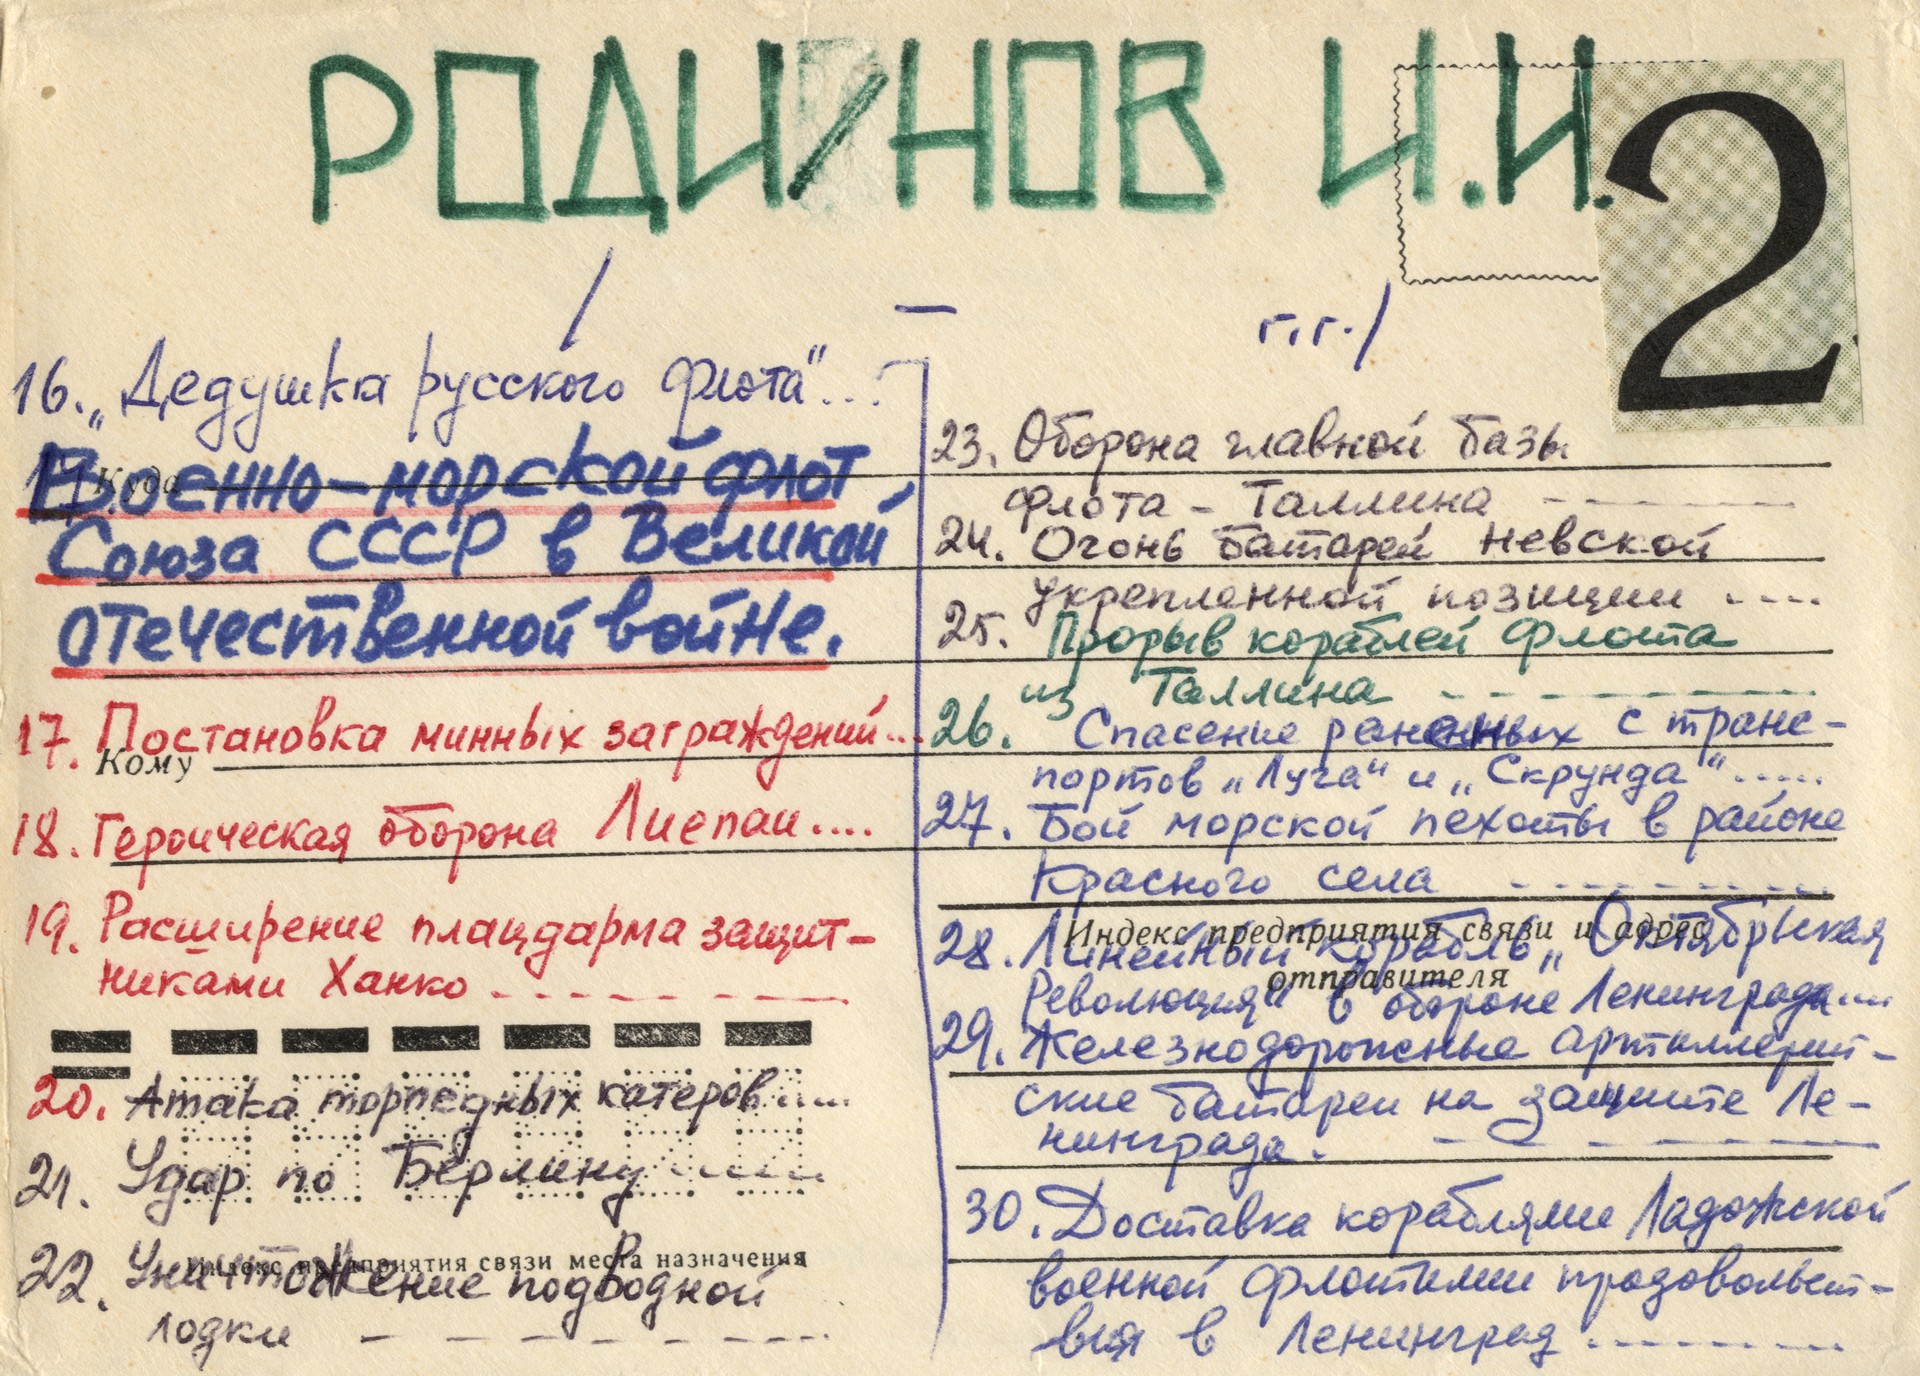 РОДИНОВ И.И.
2
/ – г.г./
16. „Дедушка русского флота“...
Военно-морской флот
Союза ССР в Великой
отечественной войне.
Куда
17. Постановка минных заграждений...
Кому
18. Героическая оборона Лиепаи....
19. Расширение плацдарма защит-
никами Ханко
20. Атака торпедных катеров....
21. Удар по Берлину
22. Уничтожение подводной
лодки
Индекс предприятия связи места назначения
23. Оборона главной базы
флота – Таллина
24. Огонь батарей Невской
укрепленной позиции ....
25. Прорыв кораблей флота
из Таллина
26. Спасение раненных с транс-
портов „Луга“ и „Скрунда“.....
27. Бой морской пехоты в районе
Красного села
Индекс предприятия связи и адрес
отправителя
28. Линейный корабль „Октябрьская
Революция“ в обороне Ленинграда...
29. Железнодорожные артиллерий-
ские батареи на защите Ле-
нинграда.
30. Доставка кораблями Ладожской
военной флотилии продовольст-
вия в Ленинград